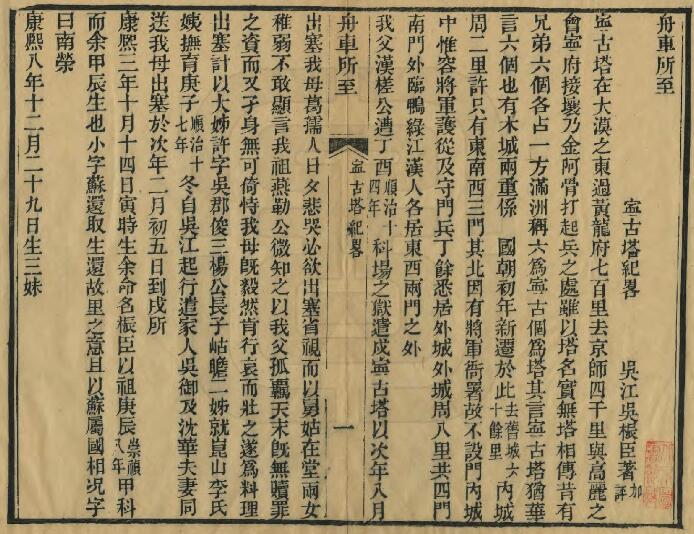 舟車所至
寧古塔紀畧
吳江吳桭臣著
加評
寧古塔在大漠之東過黃龍府七百里去京師四千里與高麗之
會寧府接壤乃金阿骨打起兵之處雖以塔名實無塔相傳昔有
兄弟六個各占一方滿洲稱六爲寧古個爲塔其言寧古塔猶華
言六個也有木城兩重係 國朝初年新遷於此去舊城六十餘里內城
周二里許只有東南西三門其北因有將軍衙署故不設門內城
中惟容將軍護從及守門兵丁餘悉居外城外城周八里共四門
南門外臨鴨綠江漢人各居東西兩門之外
我父漢槎公遭丁酉順治十四年科場之獄遣戍寧古塔以次年八月
舟車所至
寧古塔紀畧
一
出塞我母葛孺人日夕悲哭必欲出塞省視而以舅姑在堂兩女
稚弱不敢顯言我祖燕勒公微知之以我父孤羈天末旣無贖罪
之資而又孑身無可倚恃我母旣毅然肯行哀而壯之遂爲料理
出塞計以大姊許字吳郡俊三楊公長子岵瞻二姊就崑山李氏
姨撫育庚子順治十七年冬自吳江起行遣家人吳御及沈華夫妻同
送我母出塞於次年二月初五日到戍所
康熙三年十月十四日寅時生余命名桭臣以祖庚辰崇禎八年甲科
而余甲辰生也小字蘇還取生還故里之意且以蘇屬國相况字
曰南榮
康熙八年十二月二十九日生三妹